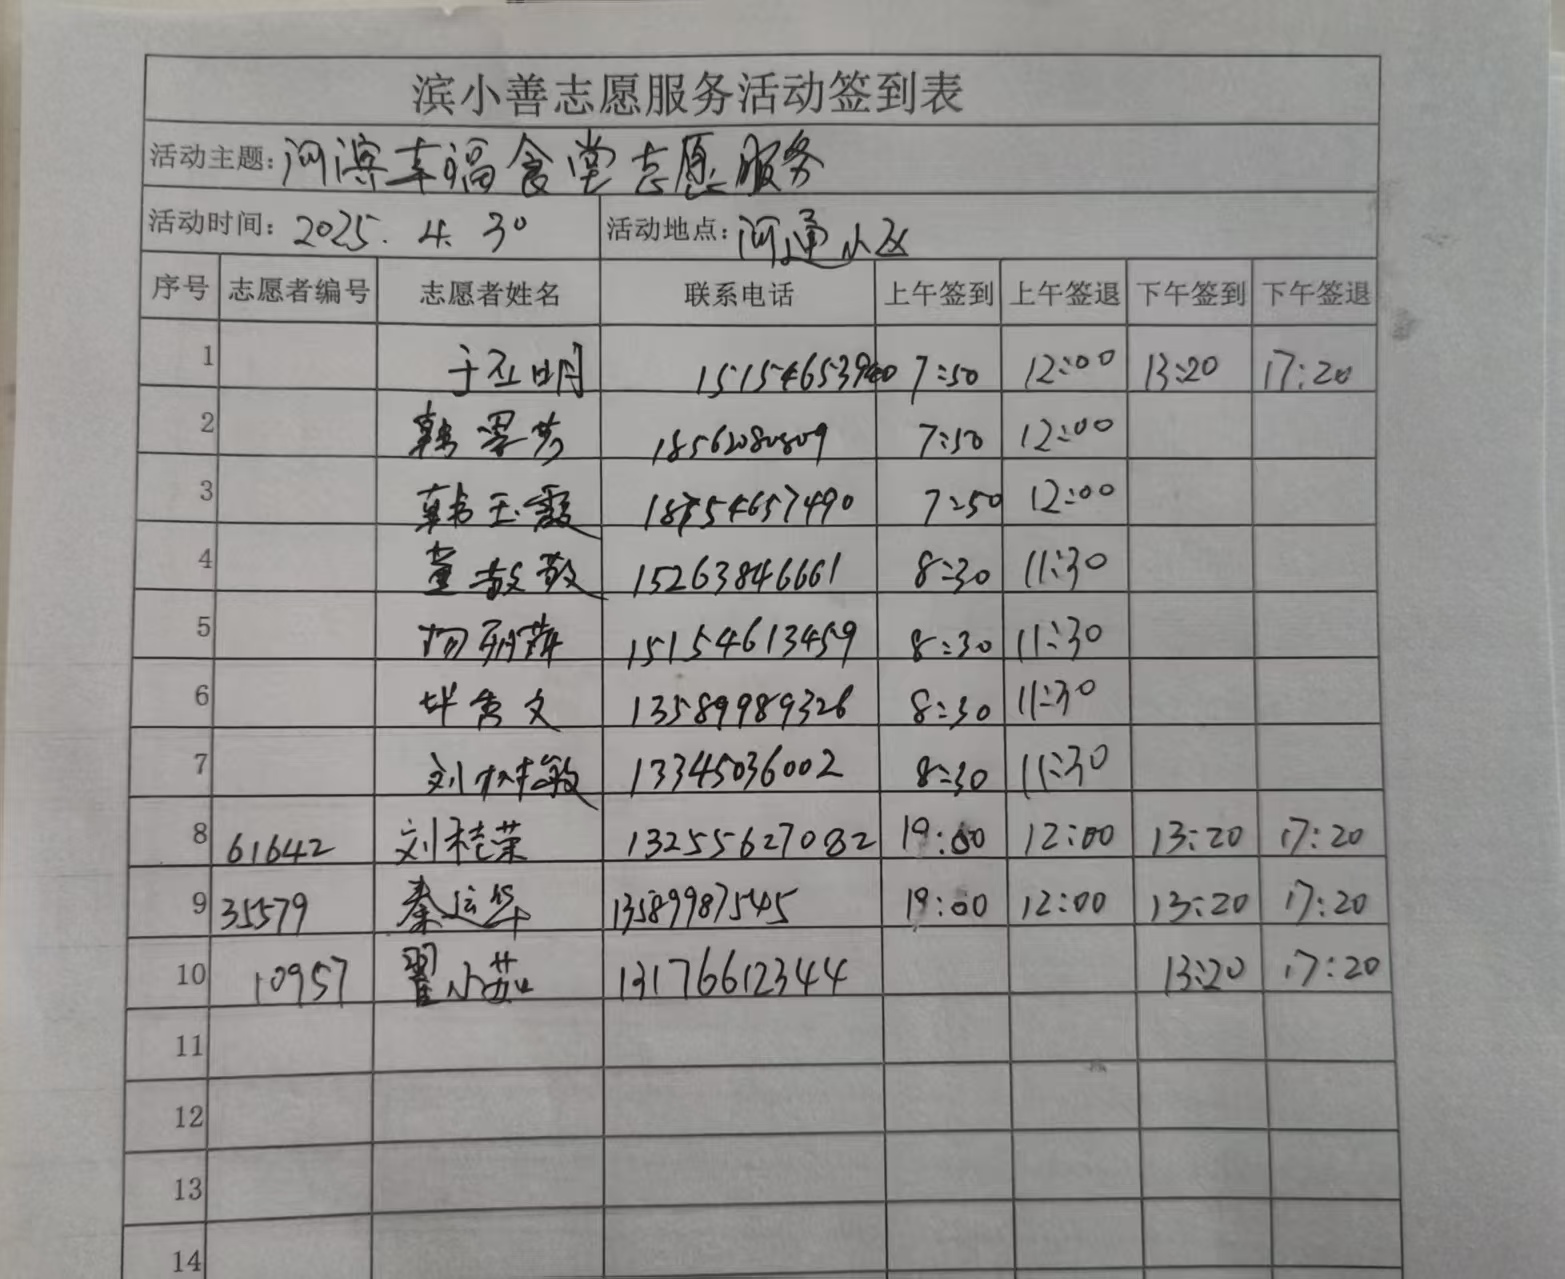 滨小善志愿服务活动签到表
活动主题: 河滨幸福食堂志愿服务
活动时间: 2025. 4. 30 活动地点: 河通小区
序号 志愿者编号 志愿者姓名 联系电话 上午签到 上午签退 下午签到 下午签退
1 于 明 7:50 12:00 13:20 17:20
2 韩翠芳 18562080809 7:50 12:00
3 韩玉霞 18754657490 7:50 12:00
4 董敬敬 15263846661 8:30 11:30
5 15154613459 8:30 11:30
6 文 13589989326 8:30 11:30
7 刘树敏 13345036002 8:30 11:30
8 61642 刘桂荣 13255627082 19:00 12:00 13:20 17:20
9 35579 秦运华 13589987545 19:00 12:00 13:20 17:20
10 10957 翟小茹 13176612344 13:20 17:20
11
12
13
14